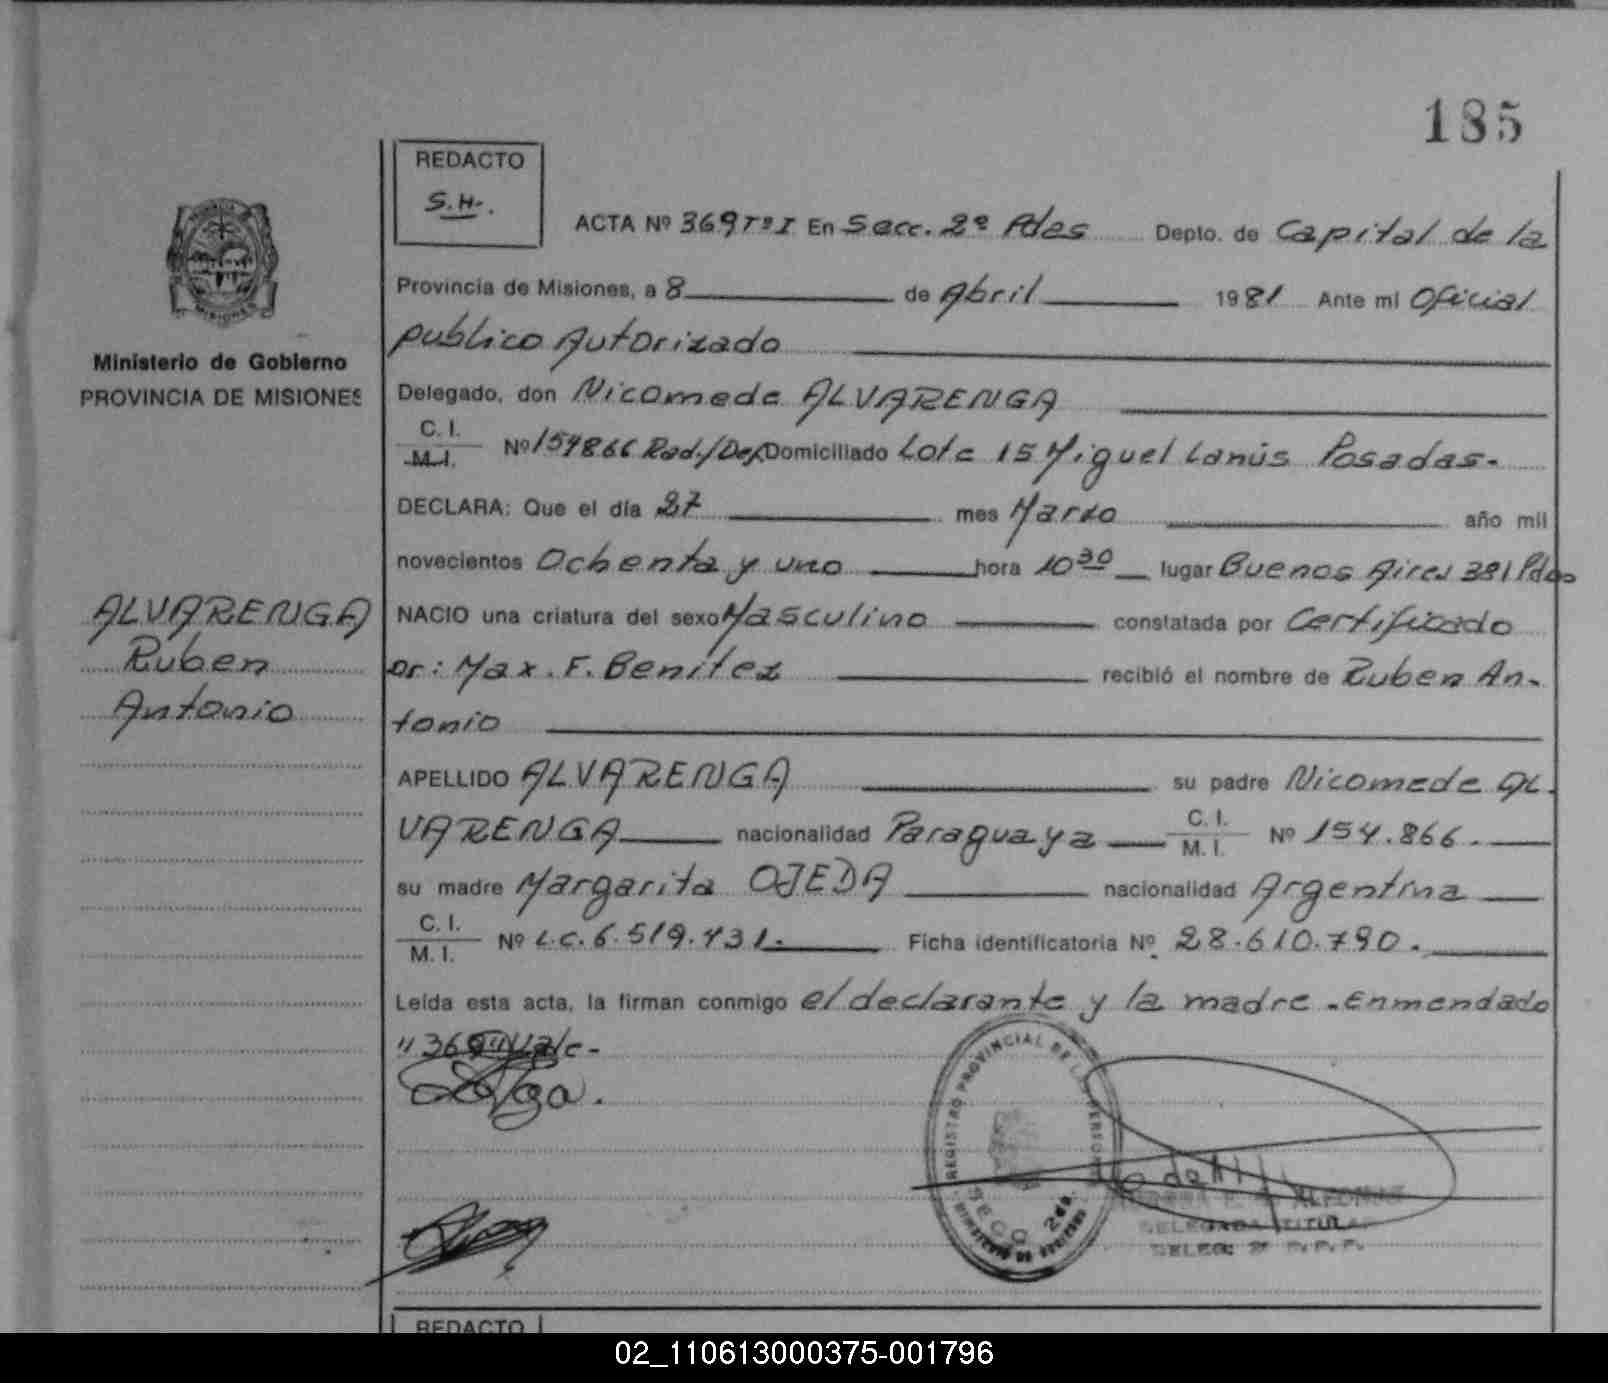 185
REDACTO
S.H.
ACTA Nº 369 TºI En Secc. 2º Pdas Depto. de Capital de la
Provincia de Misiones, a 8 de Abril 1981 Ante mi Oficial
publico Autorizado
Ministerio de Gobierno
PROVINCIA DE MISIONES
Delegado, don Nicomede ALVARENGA
C. I.
M. I. Nº 154866 Rad./Def. Domiciliado Lote 15 Miguel Lanús Posadas.
DECLARA: Que el día 27 mes Marzo año mil
novecientos Ochenta y uno hora 10 30 lugar Buenos Aires 381 Pdas
ALVARENGA
Ruben
Antonio
NACIO una criatura del sexo Masculino constatada por Certificado
Dr: Max. F. Benitez recibió el nombre de Ruben An-
tonio
APELLIDO ALVARENGA su padre Nicomede AL
VARENGA nacionalidad Paraguaya C. I. M. I. Nº 154.866.
su madre Margarita OJEDA nacionalidad Argentina
C. I.
M. I. Nº L.C. 6.519.431. Ficha identificatoria Nº 28.610.790.
Leída esta acta, la firman conmigo el declarante y la madre. Enmendado
"369" Vale-
REGISTRO PROVINCIAL DE LAS PERSONAS
SECC 2da.
MINISTERIO DE GOBIERNO
ALFONSO
DELEGADA TITULAR
DELEG. 2ª R.P.P.
REDACTO
02_110613000375-001796